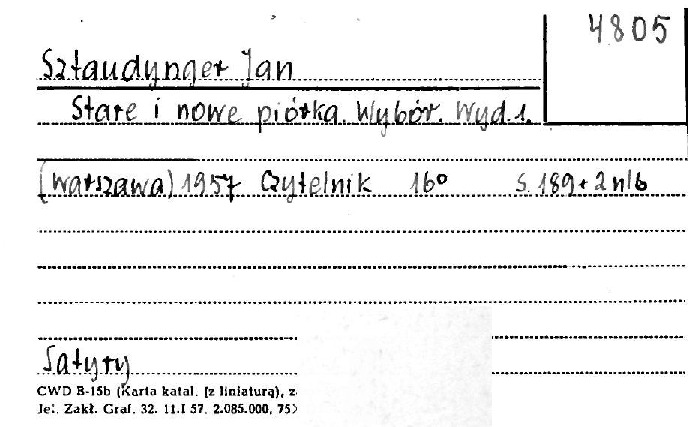 4805
Sztaudynger Jan
Stare i nowe piórka. Wybór. Wyd. 1.
(Warszawa) 1957 Czytelnik 16° s. 189+2 nlb
Satyry
CWD B-15b (Karta katal. (z liniaturą), z
Jel. Zakł. Graf. 32. 11.I 57. 2.085.000, 75)